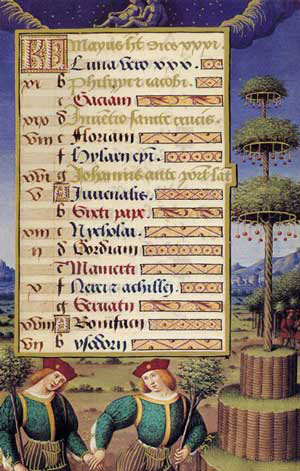 KL Mayus hit dies xxxi
Luna vero xxx.
xi b Philippi et iacobi
c Gaciani
xix d Inventio sancte crucis.
viii e Floriani
f Hylarii epi.
xvi g Johannis ante port lat
v A Iuvenalis
b Sixti pape
xiii c Nycholai
ii d Gordiani
e Mamerti
x f Nerei et achillei
g Servatii
xviii A Bonifacii
vii b ysidorii